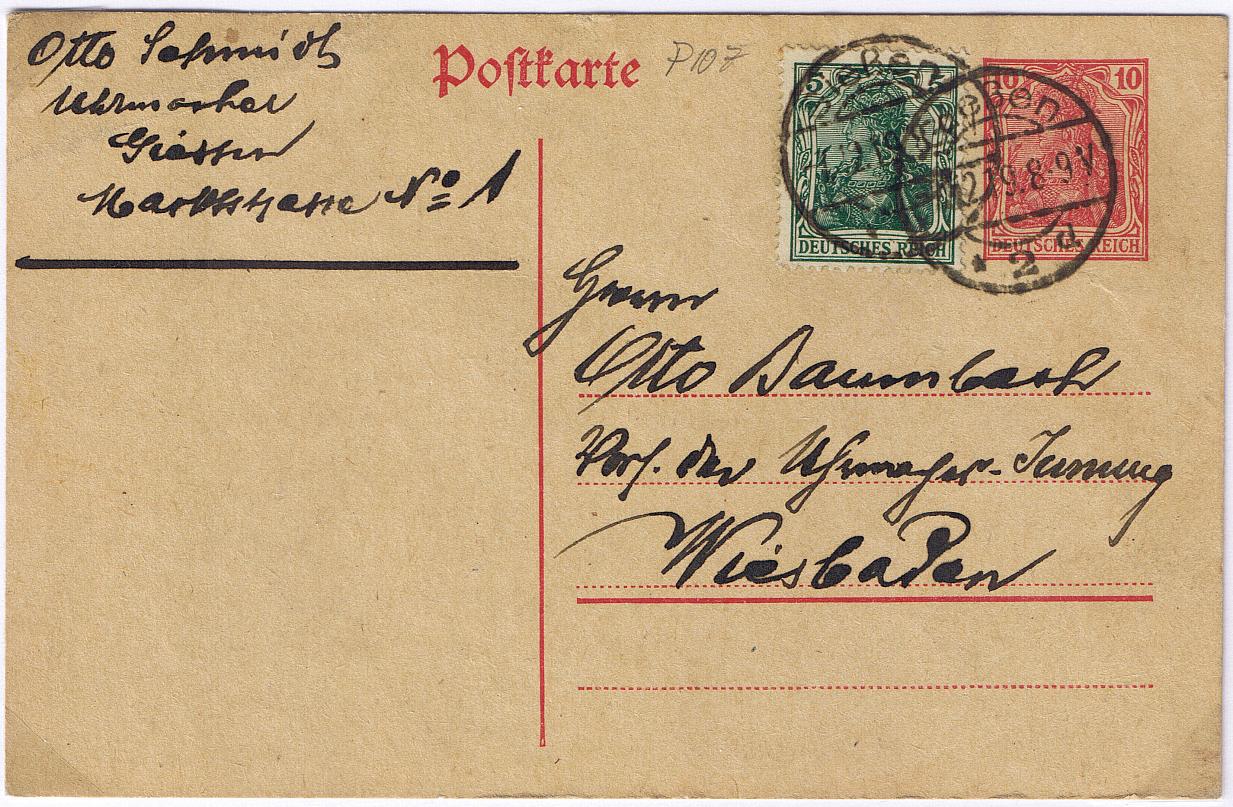 Otto Schmidt
Uhrmacher
Giessen
Marktstrasse No 1
Postkarte
P107
5
DEUTSCHES REICH
10 10
DEUTSCHES REICH
Gießen
Gießen
2.19.8-9V
* 2 d
Herrn
Otto Baumbach
Vors. der Uhrmacher-Innung
Wiesbaden